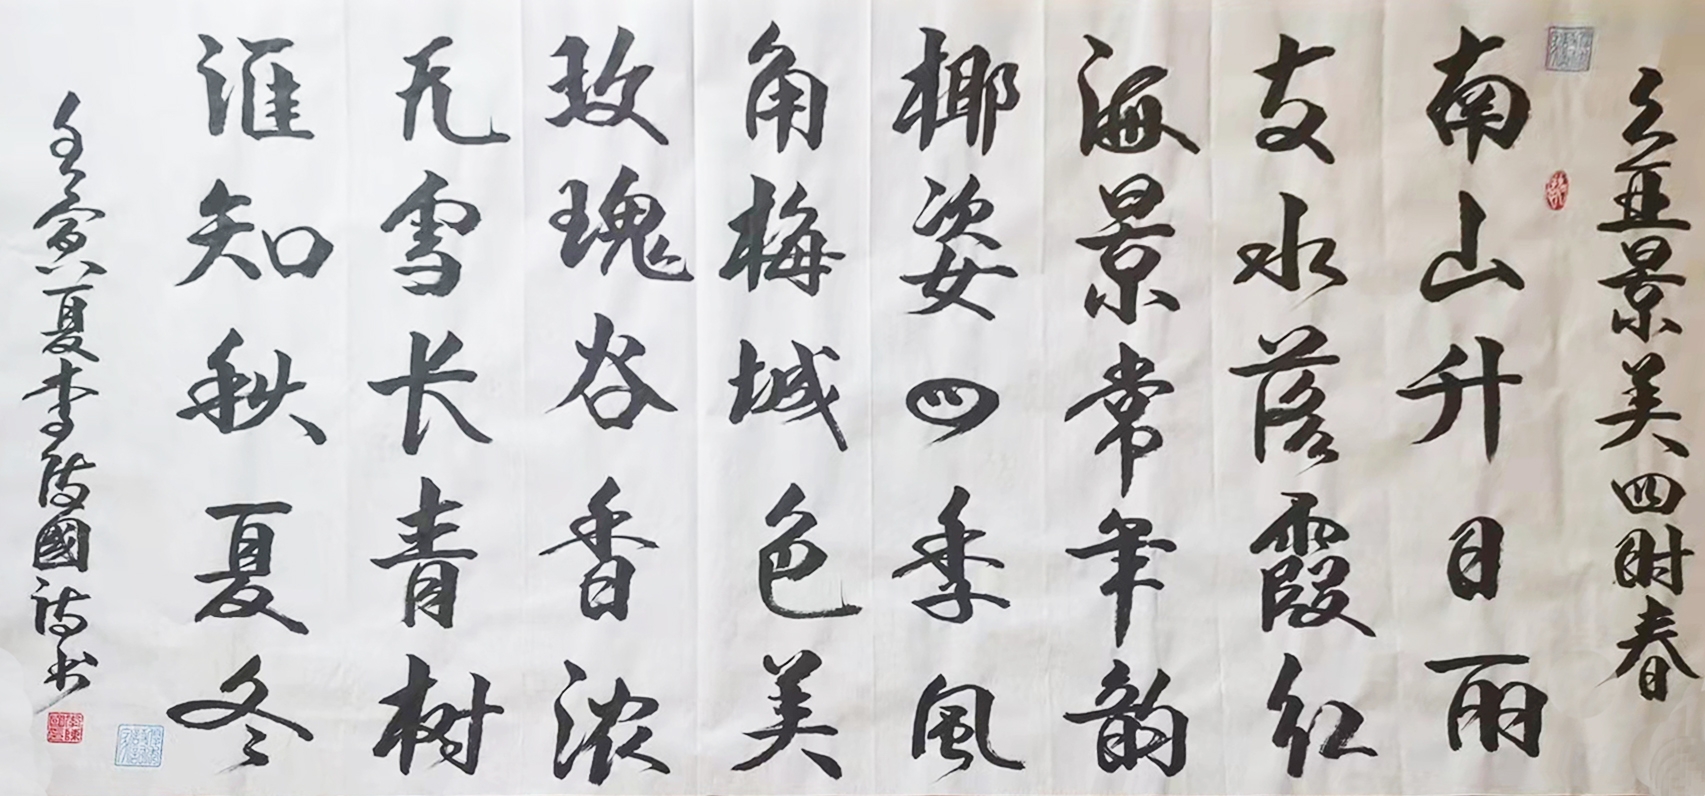 三亚景美四时春
南山升日丽
支水落霞红
海景常年韵
椰姿四季风
角梅城色美
玫瑰谷香浓
无雪长青树
谁知秋夏冬
壬寅夏李國诗书